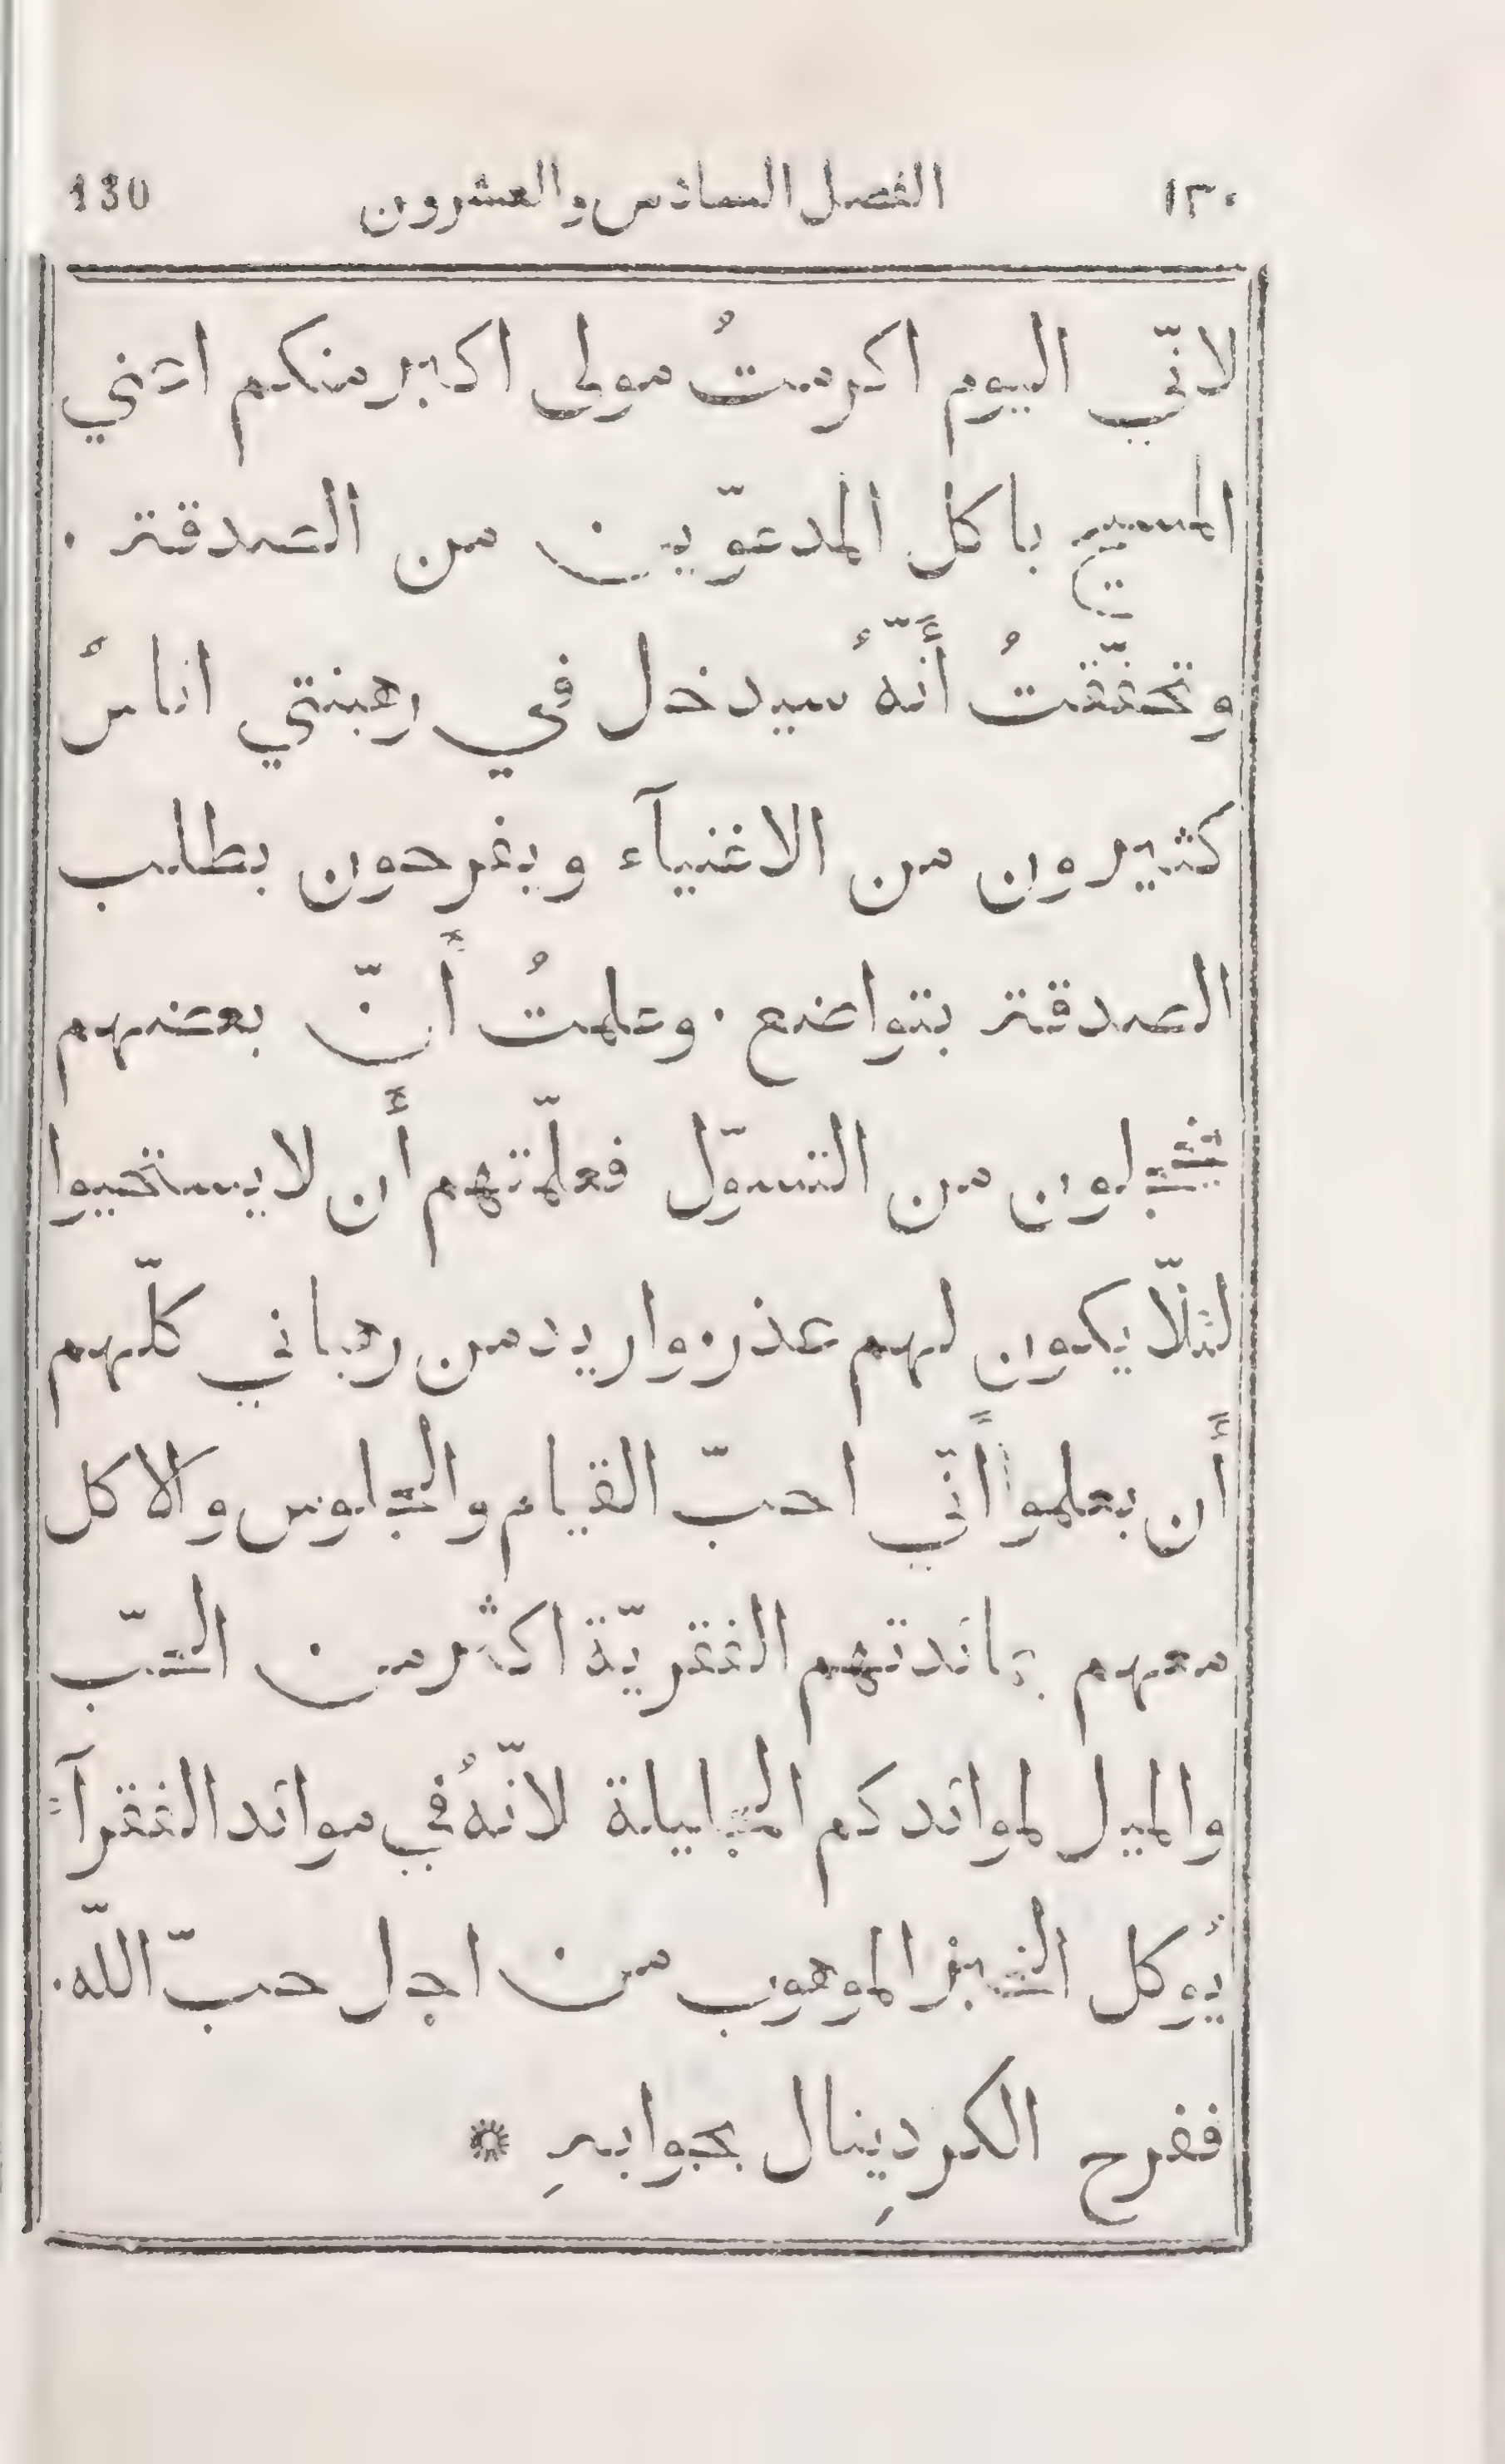 ١٣٠ الفصل السادس والعشرون 130
لانّي اليوم اكرمتُ مولى اكبر منكم اعني
المسيح باكل المدعوّيين من الصدقة .
وتحقّقتُ أَنّهُ سيدخل في رهبنتي اناسٌ
كثيرون من الاغنيآء ويفرحون بطلب
الصدقة بتواضع . وعلمتُ أَنّ بعضهم
يخجلون من التسوّل فعلّمتهم أَن لا يستحيوا
لئلّا يكون لهم عذر . واريد من رهباني كلّهم
أَن يعلموا أَنّي احبّ القيام والجلوس والاكل
معهم بمائدتهم الفقريّة اكثر من الحبّ
والميل لموائدكم الجليلة لانّهُ في موائد الفقرآء
يُوكل الخبز الموهوب من اجل حبّ اللّه .
ففرح الكردِينال بجوابهِ ۞